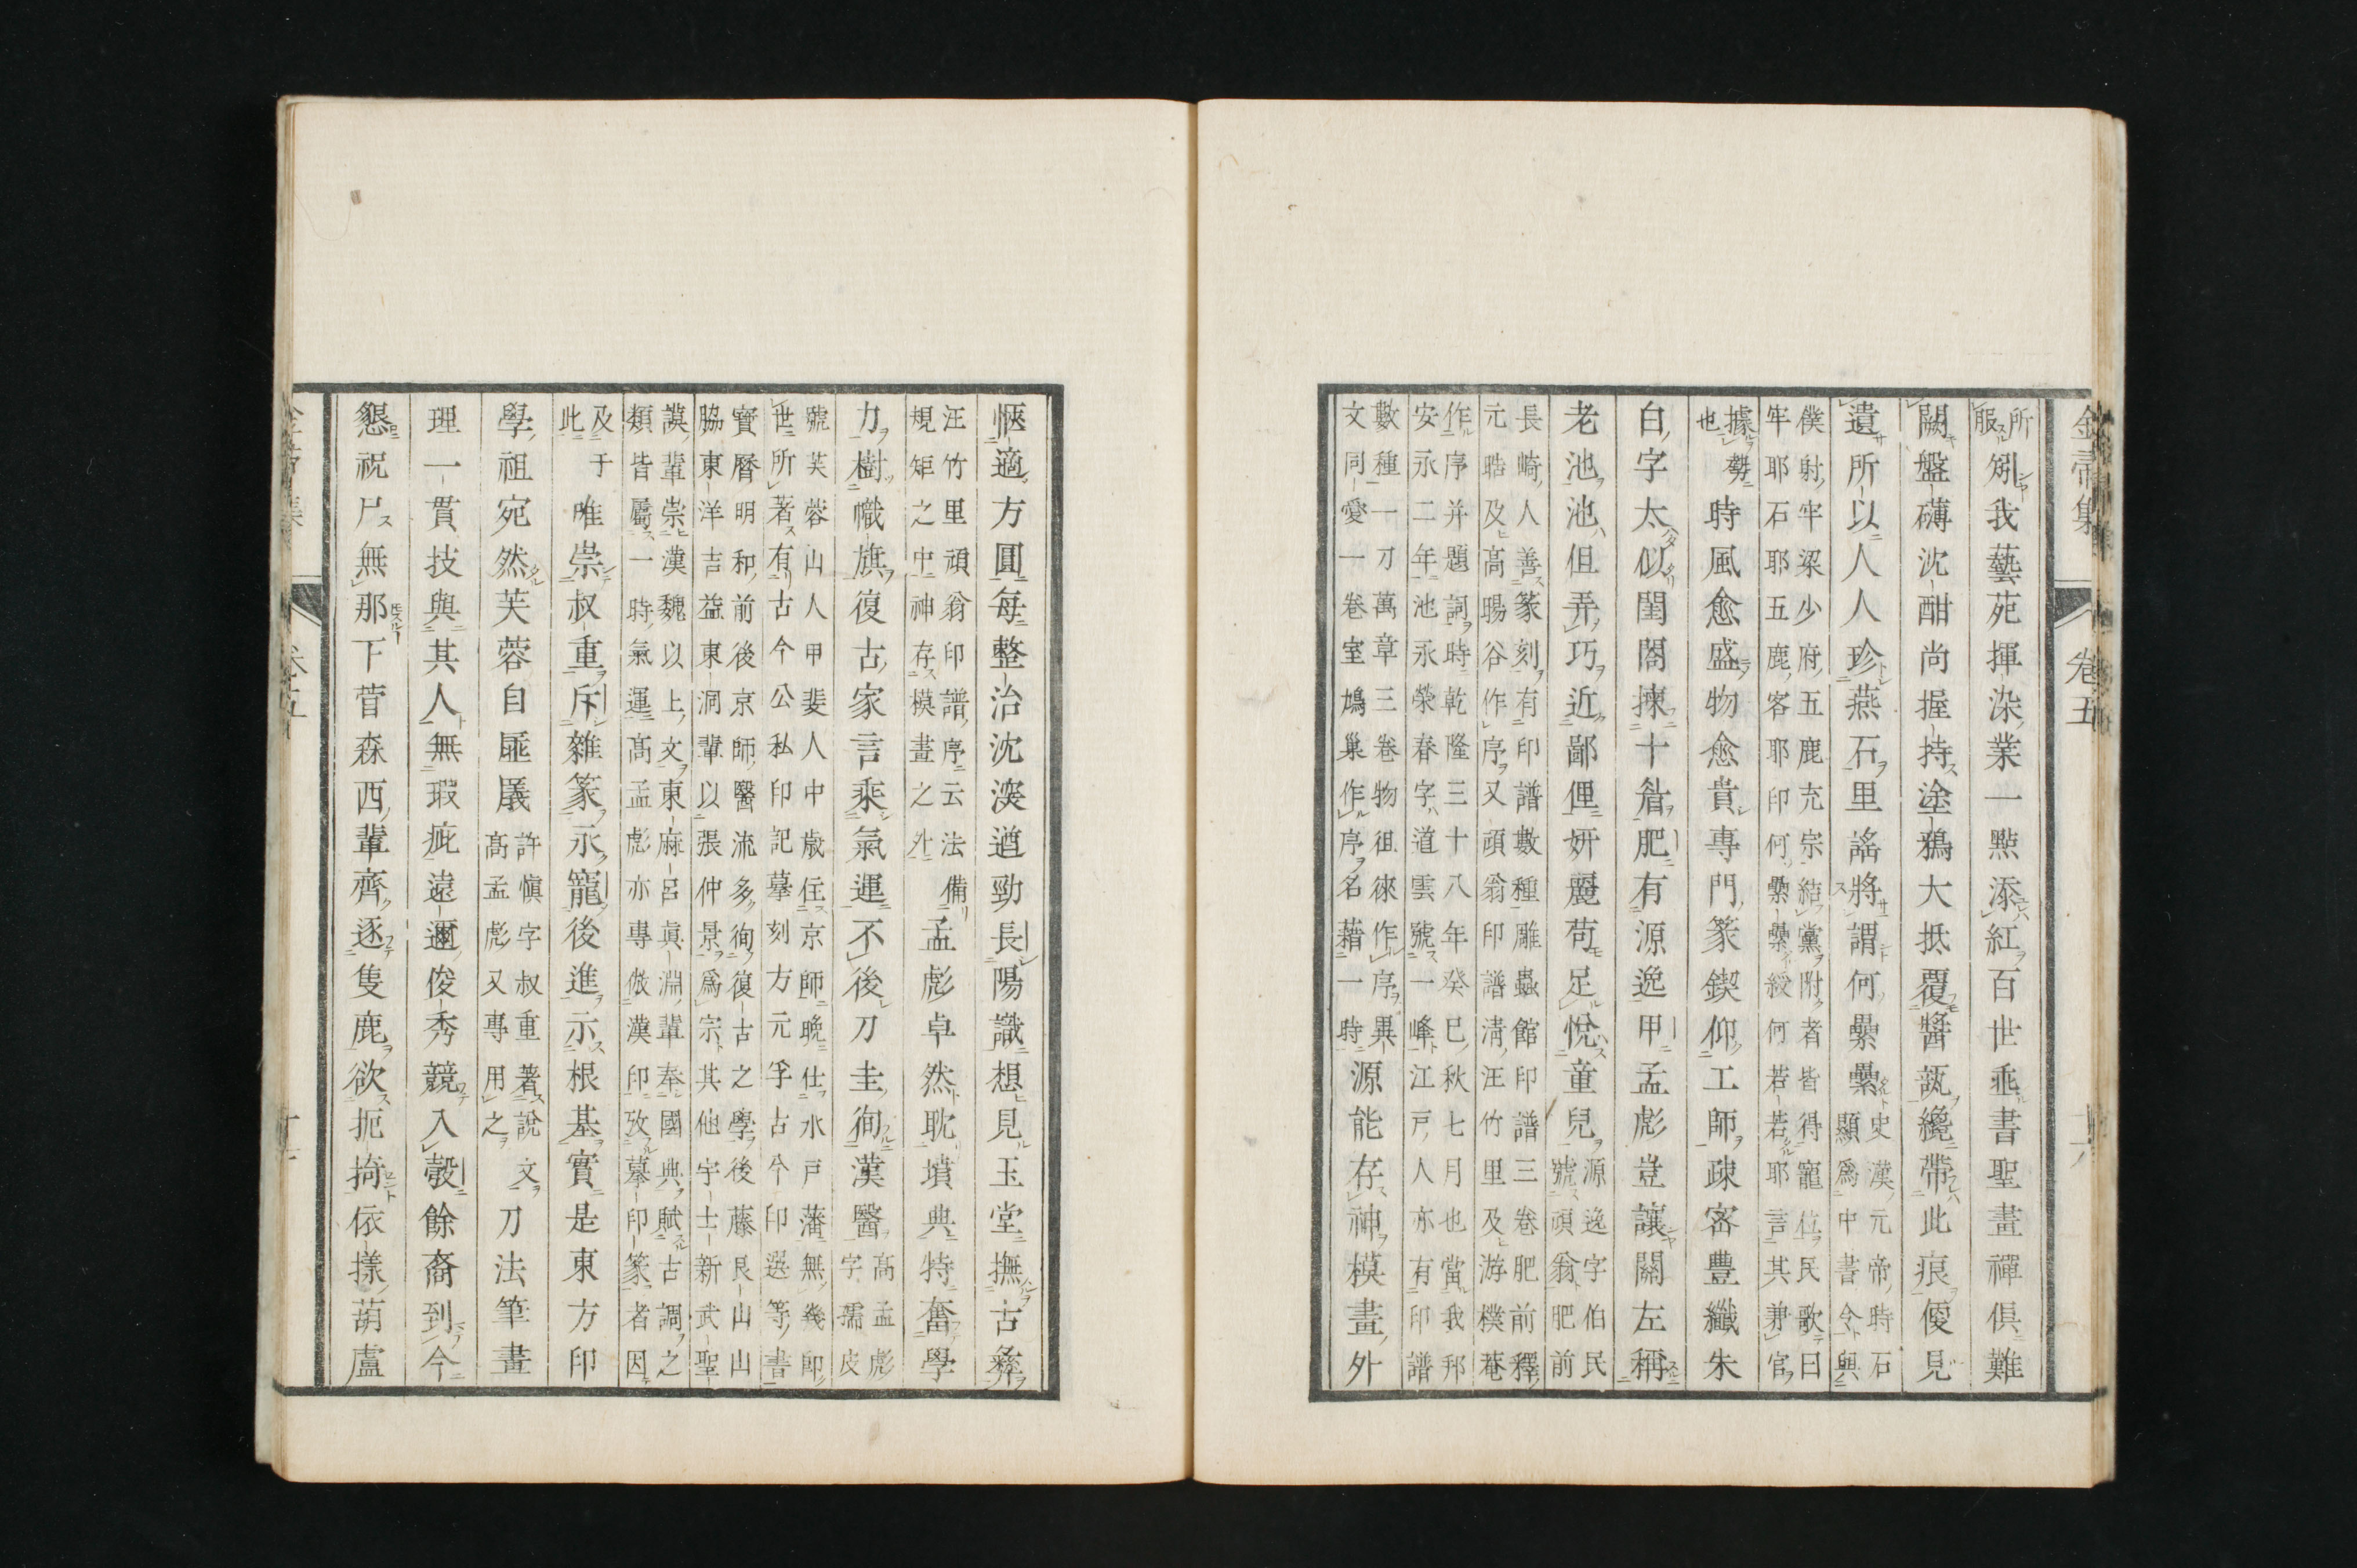 所服矧我藝苑揮染業一點添紅百世乖書聖畫禪俱難
闕盤礴沈酣尚握持塗鴉大抵覆醬瓿纔帶此痕便見
遺所以人人珍燕石里謠將謂何纍纍史漢元帝時石顯爲中書令與
僕射牢梁少府五鹿充宗結黨附者皆得寵位民歌曰牢耶石耶五鹿客耶印何纍纍綬何若若耶言其兼官
據勢也時風愈盛物愈貴專門篆鍥仰工師疎密豐纖朱
白字太似閨閤揀十眉肥有源逸甲孟彪豈讓關左稱
老池池但弄巧近鄙俚妍麗苟足悅童兒源逸字伯民號頑翁肥前
長崎人善篆刻有印譜數種雕蟲館印譜三卷肥前釋元晧及高暘谷作序又頑翁印譜清汪竹里及游樸菴
作序并題詞時乾隆三十八年癸巳秋七月也當我邦安永二年池永榮春字道雲號一峰江戸人亦有印譜
數種一刀萬章三卷物徂徠作序異文同愛一卷室鳩巢作序名藉一時源能存神模畫外
愜適方圓每整治沈渙遒勁長陽識想見玉堂撫古彝
汪竹里頑翁印譜序云法規矩之中神存模畫之外備孟彪卓然耽墳典特奮學
力樹幟旗復古家言乘氣運不後刀圭徇漢醫高孟彪字孺皮
號芙蓉山人甲斐人中歲住京師晚仕水戸藩無幾卽世所著有古今公私印記摹刻方元孚古今印選等書
寶曆明和前後京師醫流多徇復古之學後藤艮山山脇東洋吉益東洞輩以張仲景爲宗其他宇士新武聖
謨輩崇漢魏以上文東麻呂眞淵輩奉國典賦古調之類皆屬一時氣運高孟彪亦專倣漢印攷摹印篆者因
及于此唯崇叔重斥雜篆永寵後進示根基實是東方印
學祖宛然芙蓉自匪厲許愼字叔重著說文高孟彪又專用之刀法筆畫
理一貫技與其人無瑕疵遠邇俊秀競入彀餘裔到今
懇祝尸無那下菅森西輩齊逐隻鹿欲扼掎依樣葫盧
卷五